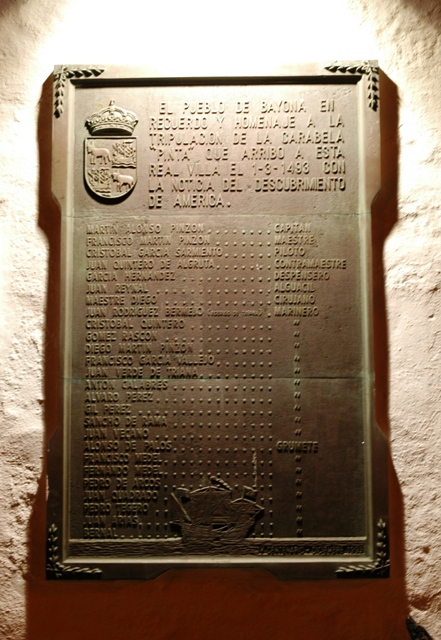 EL PUEBLO DE BAYONA EN
RECUERDO Y HOMENAJE A LA
TRIPULACION DE LA CARABELA
"PINTA" QUE ARRIBO A ESTA
REAL VILLA EL 1-3-1493 CON
LA NOTICIA DEL DESCUBRIMIENTO
DE AMERICA.
MARTIN ALONSO PINZON . . . . . . . CAPITAN
FRANCISCO MARTIN PINZON . . . . . . MAESTRE
CRISTOBAL GARCIA SARMIENTO . . . . . PILOTO
JUAN QUINTERO DE ALGRUTA . . . . . . CONTRAMAESTRE
GARCIA HERNANDEZ . . . . . . . . DESPENSERO
JUAN REYNAL . . . . . . . . . ALGUACIL
MAESTRE DIEGO . . . . . . . . . CIRUJANO
JUAN RODRIGUEZ BERMEJO . . . . MARINERO
CRISTOBAL QUINTERO . . . . . . . "
GOMEZ RASCON . . . . . . . . . "
DIEGO MARTIN PINZON . . . . . . . "
FRANCISCO GARCIA VALLEJO . . . . . . "
JUAN VERDE DE TRIANA . . . . . . . "
ANTON CALABRES . . . . . . . . "
ALVARO PEREZ . . . . . . . . . "
GIL PEREZ . . . . . . . . . . "
SANCHO DE RAMA . . . . . . . . "
JUAN VECANO . . . . . . . . . "
ALONSO DE PALOS . . . . . . . . GRUMETE
FRANCISCO MEDEL . . . . . . . . "
FERNANDO MEDEL . . . . . . . . "
PEDRO DE ARCOS . . . . . . . . "
JUAN QUADRADO . . . . . . . . "
PEDRO TEGERO . . . . . . . . "
JUAN ARIAS . . . . . . . . . "
BERNAL . . . . . . . . . . "